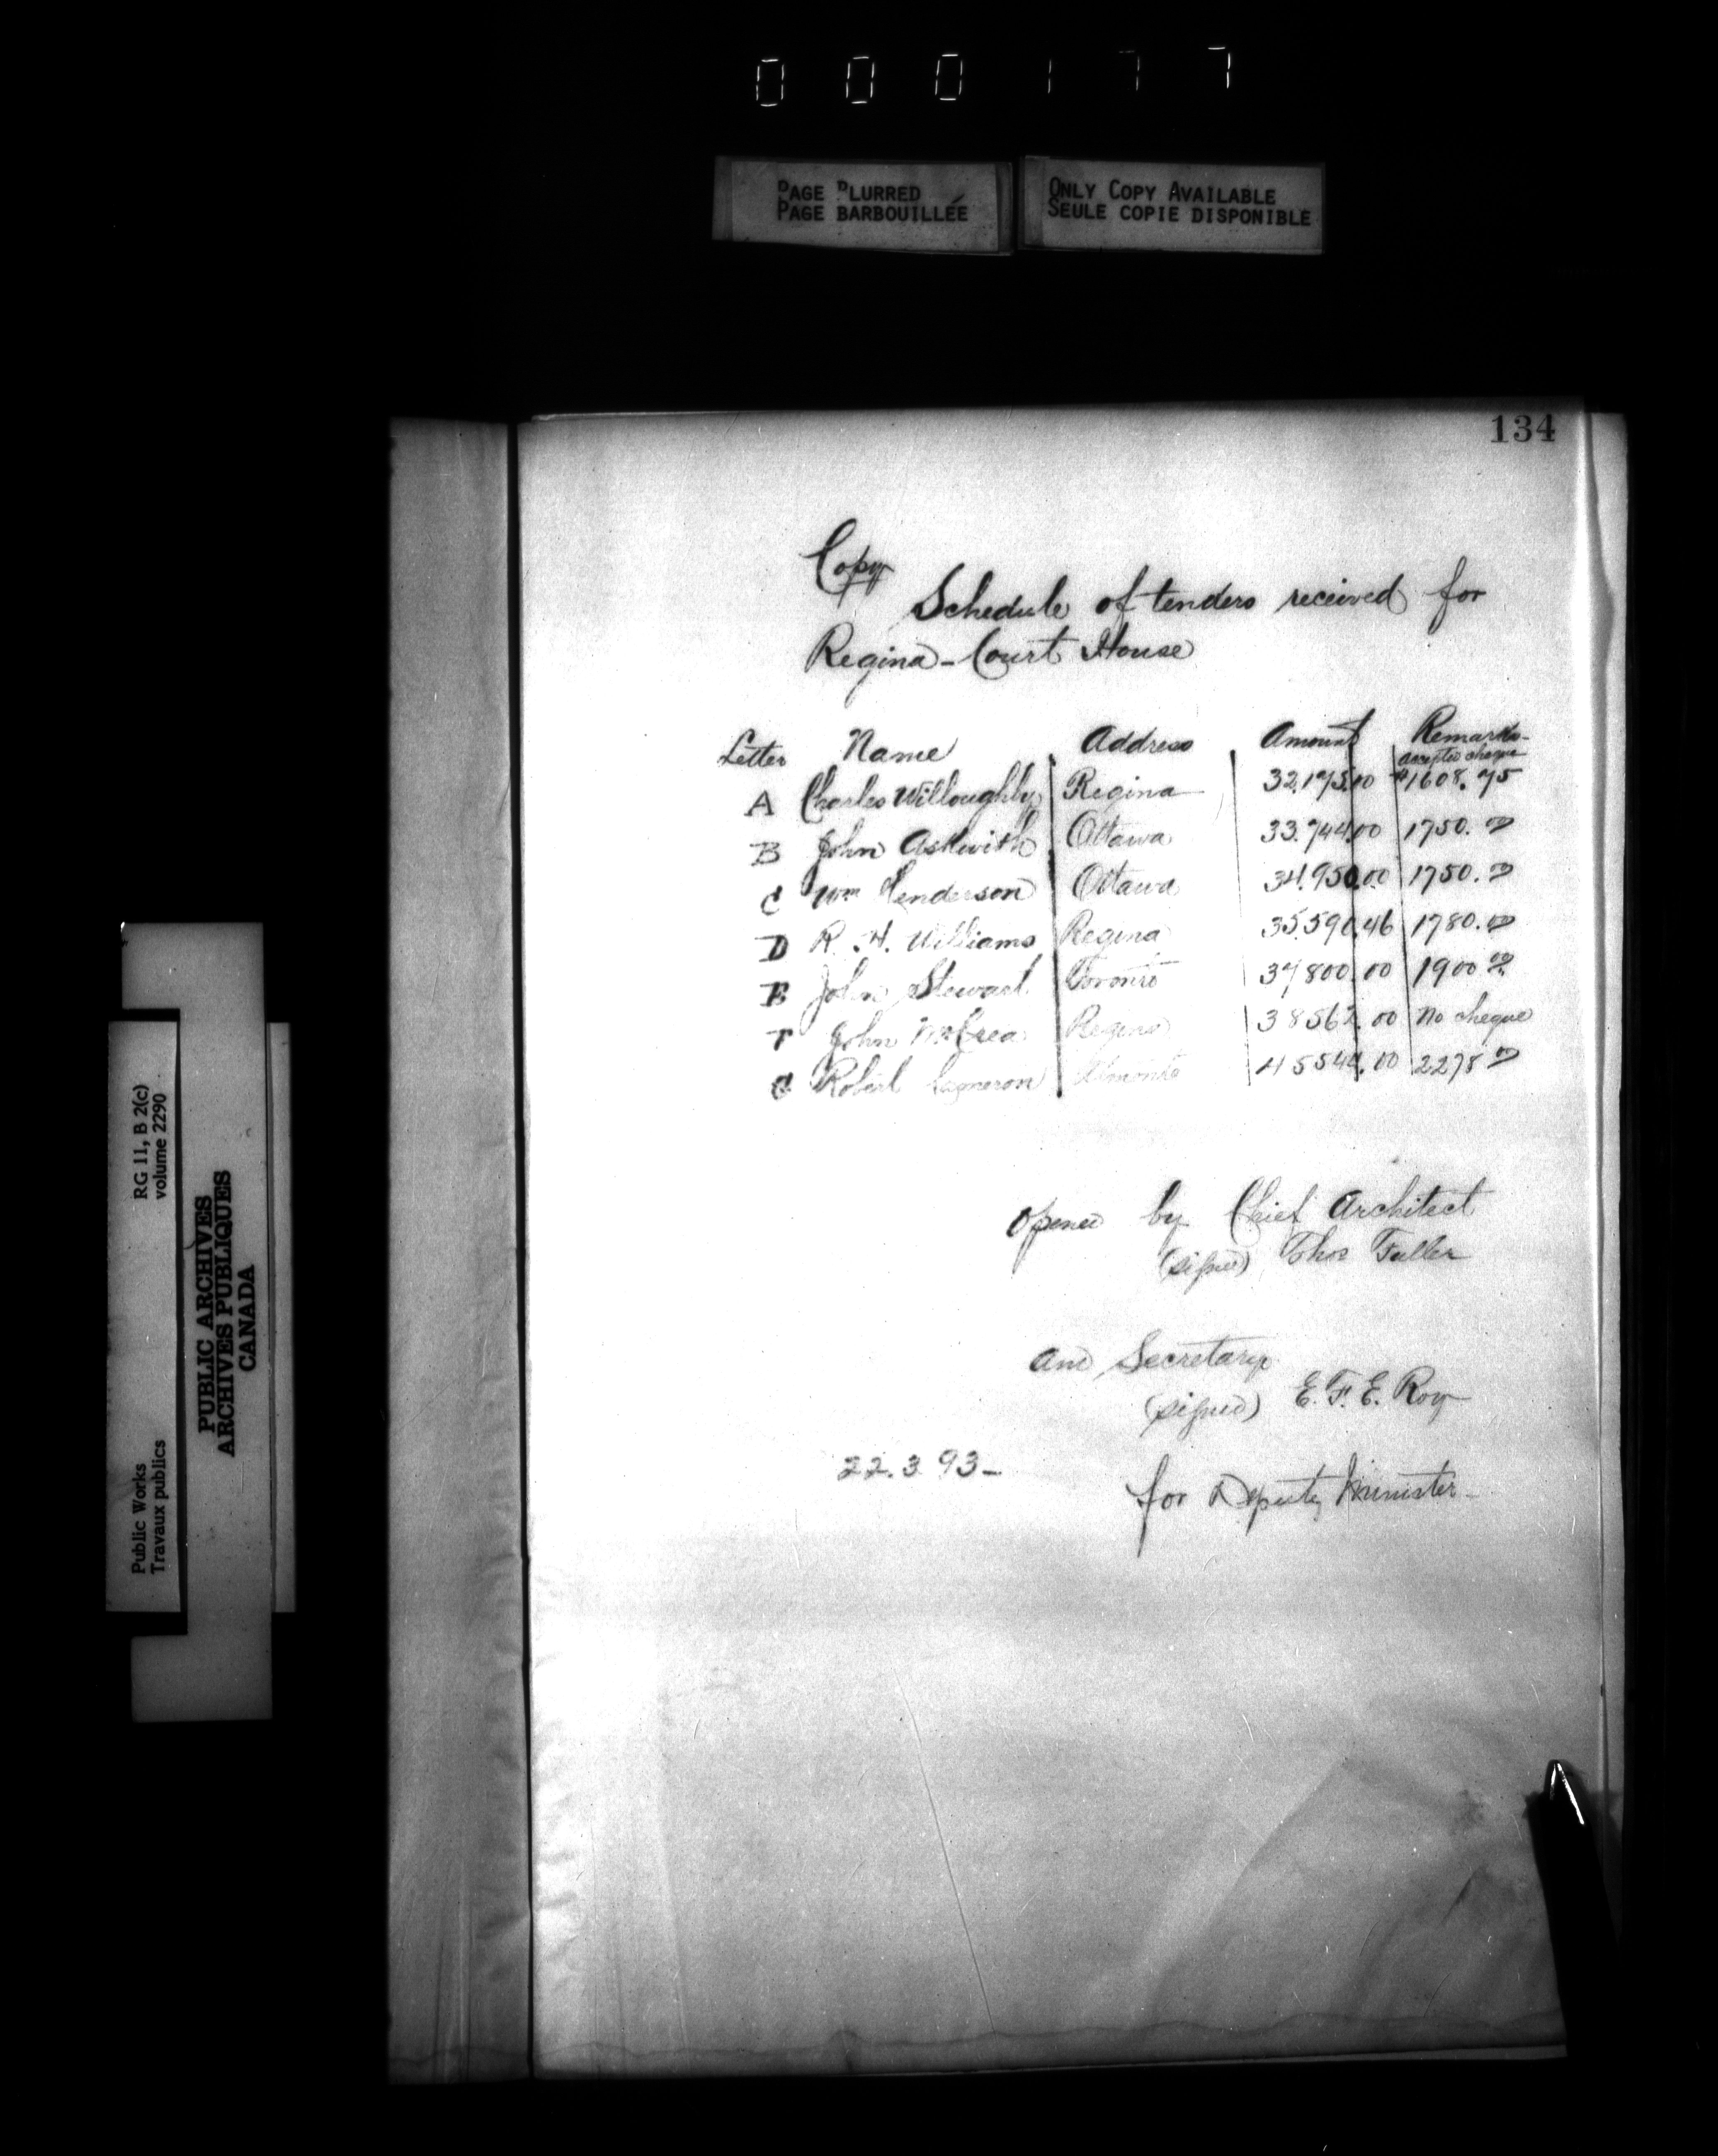 000177
PAGE BLURRED
PAGE BARBOUILLÉE
ONLY COPY AVAILABLE
SEULE COPIE DISPONIBLE
134
Copy
Schedule of tenders received for
Regina - Court House
Letter Name Address Amount Remarks
accepted cheque
A Charles Willoughby Regina 32.175.00 $1608.75
B John Askwith Ottawa 33.744.00 1750.00
C Wm Henderson Ottawa 34.950.00 1750.00
D R. H. Williams Regina 35.590.46 1780.00
E John Stewart Toronto 37800.00 1900.00
F John McCrea Regina 38562.00 No cheque
G Robert Cameron Almonte 45544.00 2278.00
Opened by Chief Architect
(signed) Thos Fuller
and Secretary
(signed) E. F. E. Roy
22.3.93 -
for Deputy Minister -
RG 11, B 2(c)
volume 2290
Public Works
Travaux publics
PUBLIC ARCHIVES
ARCHIVES PUBLIQUES
CANADA